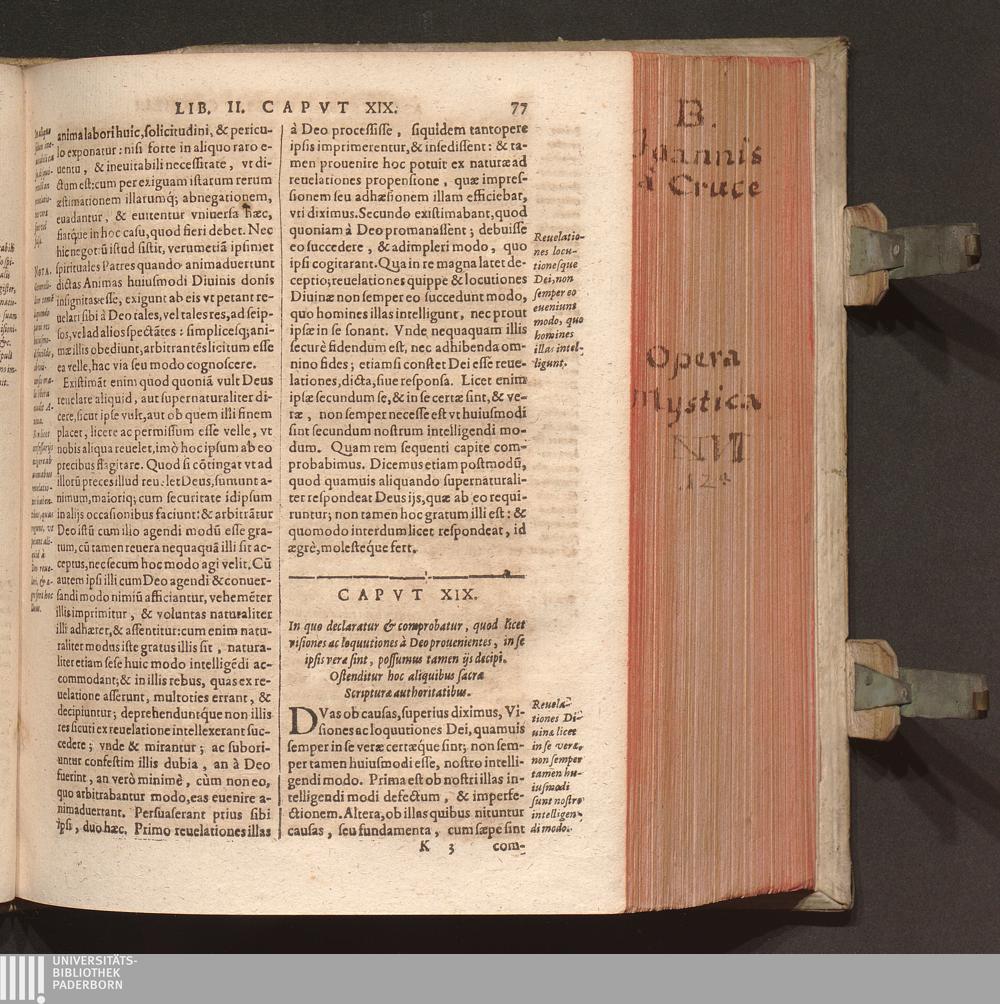 LIB. II. CAPVT XIX. 77
anima labori huic, solicitudini, & pericu-
lo exponatur: nisi forte in aliquo raro e-
uentu, & ineuitabili necessitate, vt di-
ctum est: cum per exiguam istarum rerum
æstimationem illarumq́; abnegationem,
euadantur, & euitentur vniuersa hæc,
fiatque in hoc casu, quod fieri debet. Nec
hic negotiũ istud sistit, verumetiã ipsimet
spirituales Patres quando animaduertunt
dictas Animas huiusmodi Diuinis donis
insignitas esse, exigunt ab eis vt petant re-
uelari sibi à Deo tales, vel tales res, ad seip-
sos, vel ad alios spectãtes: simplicesq́; ani-
mæ illis obediunt, arbitrantes licitum esse
ea velle, hac via seu modo cognoscere.
Existimãt enim quod quoniã vult Deus
reuelare aliquid, aut supernaturaliter di-
cere, sicut ipse vult, aut ob quem illi finem
placet, licere ac permissum esse velle, vt
nobis aliqua reuelet, imò hoc ipsum ab eo
precibus flagitare. Quod si cõtingat vt ad
illorũ preces illud reuelet Deus, sumunt a-
nimum, maioriq; cum securitate id ipsum
in alijs occasionibus faciunt: & arbitrãtur
Deo istũ cum illo agendi modũ esse gra-
tum, cũ tamen reuera nequaquã illi sit ac-
ceptus, nec secum hoc modo agi velit. Cũ
autem ipsi illi cum Deo agendi & conuer-
sandi modo nimiũ afficiantur, vehemēter
illis imprimitur, & voluntas naturaliter
illi adhæret, & assentitur: cum enim natu-
raliter modus iste gratus illis sit, natura-
liter etiam sese huic modo intelligēdi ac-
commodant; & in illis rebus, quas ex re-
uelatione asserunt, multoties errant, &
decipiuntur; deprehenduntq́ue non illis
res sicuti ex reuelatione intellexerant suc-
cedere; vnde & mirantur; ac subori-
untur confestim illis dubia, an à Deo
fuerint, an verò minimè, cùm non eo,
quo arbitrabantur modo, eas euenire a-
nimaduertant. Persuaserant prius sibi
ipsi, duo hæc. Primo reuelationes illas
NOTA.
à Deo processisse, siquidem tantopere
ipsis imprimerentur, & insedissent: & ta-
men prouenire hoc potuit ex naturæ ad
reuelationes propensione, quæ impres-
sionem seu adhæsionem illam efficiebat,
vti diximus. Secundo existimabant, quod
quoniam à Deo promanassent; debuisse
eo succedere, & adimpleri modo, quo
ipsi cogitarant. Qua in re magna latet de-
ceptio; reuelationes quippe & locutiones
Diuinæ non semper eo succedunt modo,
quo homines illas intelligunt, nec prout
ipsæ in se sonant. Vnde nequaquam illis
securè fidendum est, nec adhibenda om-
nino fides; etiamsi constet Dei esse reue-
lationes, dicta, siue responsa. Licet enim
ipsæ secundum se, & in se certæ sint, & ve-
ræ, non semper necesse est vt huiusmodi
sint secundum nostrum intelligendi mo-
dum. Quam rem sequenti capite com-
probabimus. Dicemus etiam postmodũ,
quod quamuis aliquando supernaturali-
ter respondeat Deus ijs, quæ ab eo requi-
runtur; non tamen hoc gratum illi est: &
quomodo interdum licet respondeat, id
ægrè, molesteq́ue fert.
Reuelatio-
nes locu-
tionesque
Dei, non
semper eo
eueniunt
modo, quo
homines
illas intel-
ligunt.
CAPVT XIX.
In quo declaratur & comprobatur, quod licet
visiones ac loquutiones à Deo prouenientes, in se
ipsis veræ sint, possumus tamen ijs decipi.
Ostenditur hoc aliquibus sacræ
Scripturæ authoritatibus.
DVas ob causas, superius diximus, Vi-
siones ac loquutiones Dei, quamuis
semper in se veræ certæque sint; non sem-
per tamen huiusmodi esse, nostro intelli-
gendi modo. Prima est ob nostri illas in-
telligendi modi defectum, & imperfe-
ctionem. Altera, ob illas quibus nituntur
causas, seu fundamenta, cum sæpe sint
Reuela-
tiones Di-
uinæ licet
in se veræ,
non semper
tamen hu-
iusmodi
sunt nostro
intelligen-
di modo.
K 3 com-
B.
Joannis
à Cruce
Opera
Mystica
UNIVERSITÄTS-
BIBLIOTHEK
PADERBORN